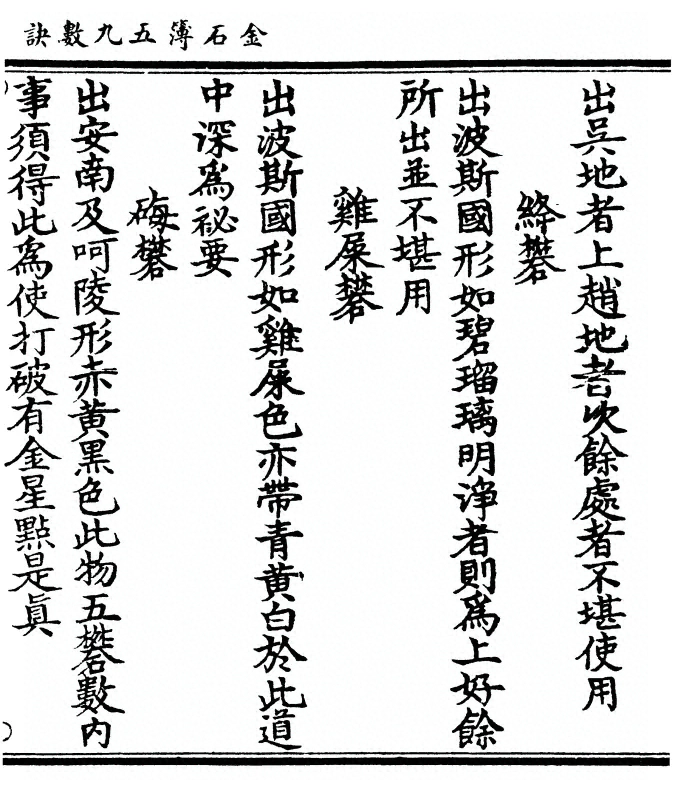 金石簿五九數訣
出吳地者上趙地者次餘處者不堪使用
絳礬
出波斯國形如碧瑠璃明淨者則爲上好餘
所出並不堪用
雞屎礬
出波斯國形如雞屎色亦帶青黃白於此道
中深爲祕要
出安南及呵陵形赤黃黑色此物五礬數內
事須得此爲使打破有金星點是眞